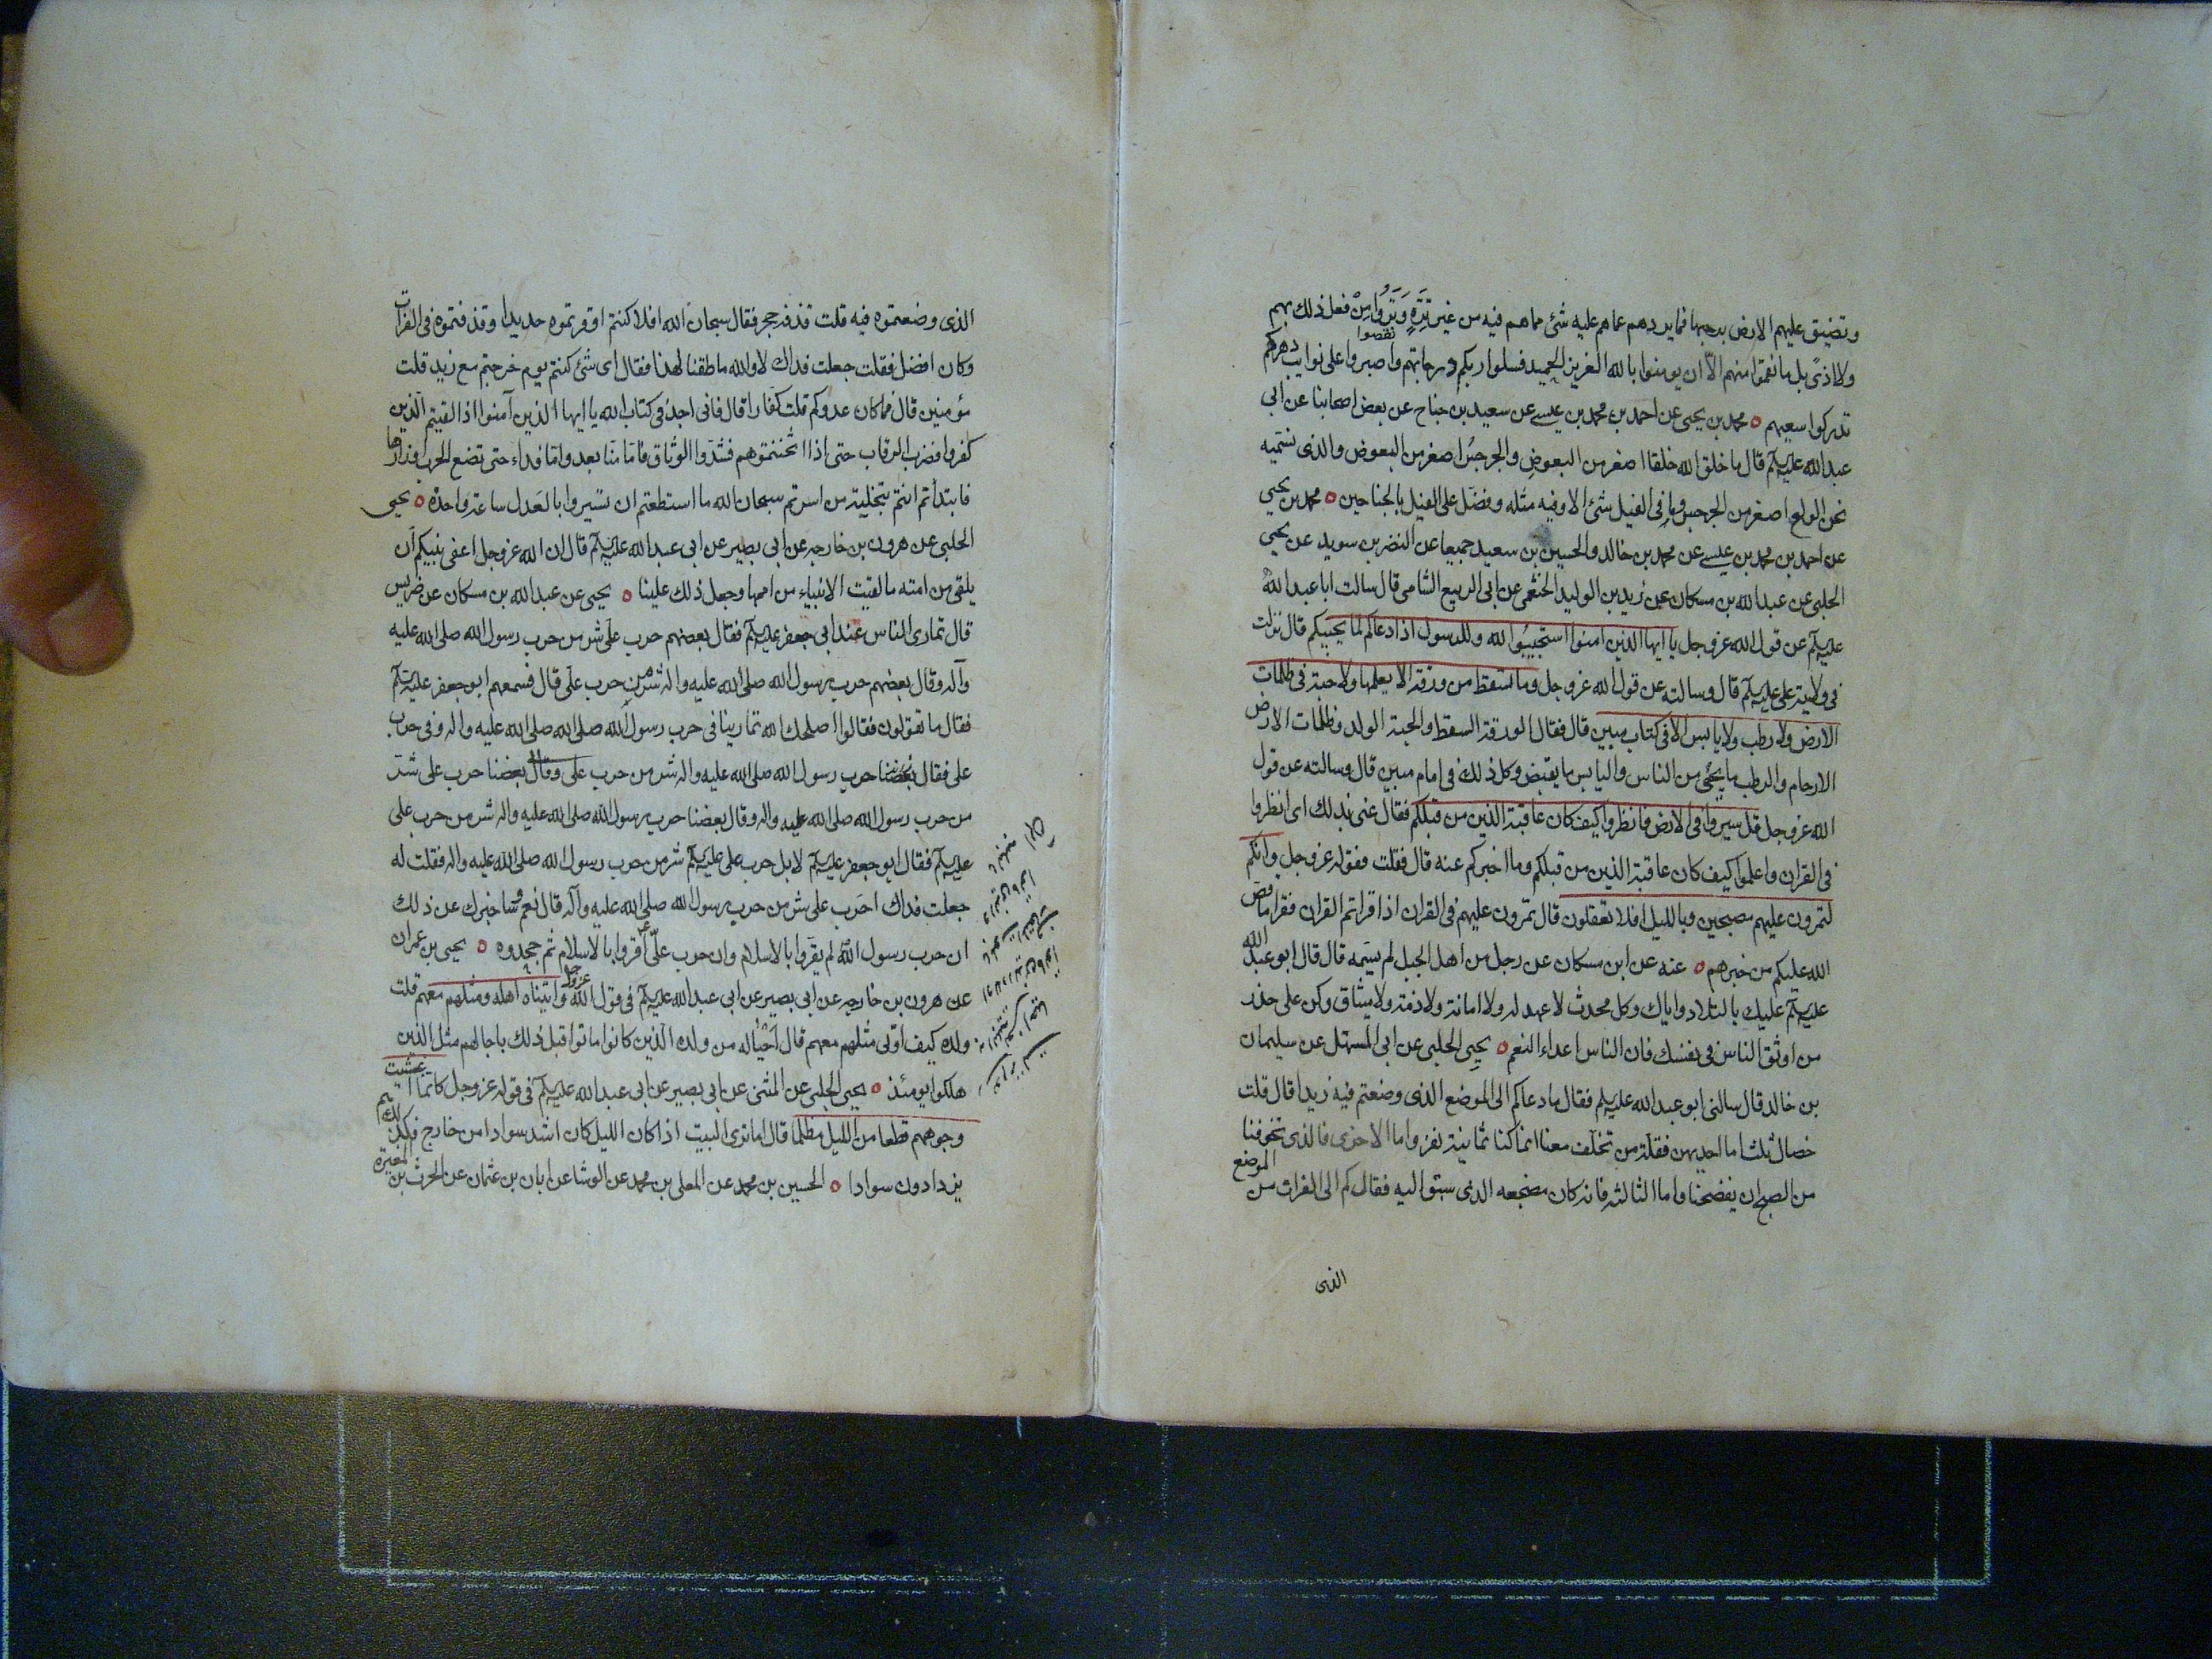 وتضيق عليهم الارض برحبها فما يردهم عما هم عليه شئ مما هم فيه من غير تِرَةٍ وَتَرُوا مِنْ فعل ذلك بهم
ولا اذىً بل ما نقموا منهم الّا ان يومنوا بالله العزيز الحميد فسلوا ربكم درجاتهم واصبروا على نوايب دهركم
تدركوا سعيهم ٥ محمد بن يحيى عن احمد بن محمد بن عيسى عن سعيد بن جناح عن بعض اصحابنا عن ابى
عبد الله عليه السلم قال ما خلق الله خلقا اصغر من البعوض والجرجس اصغر من البعوض والذى نسميه
نحن الولع اصغر من الجرجس وما فى الفيل شئ الا وفيه مثله وفضّل على الفيل بالجناحين ٥ محمد بن يحيى
عن احمد بن محمد بن عيسى عن محمد بن خالد والحسين بن سعيد جميعا عن النضر بن سويد عن يحيى
الحلبى عن عبد الله بن مسكان عن زيد بن الوليد الخثعمى عن ابى الربيع الشامى قال سالت ابا عبد الله
عليه السلم عن قول الله عز وجل يا ايها الذين امنوا استجيبُوا لله وللرسول اذا دعاكم لما يحييكم قال نزلت
فى ولاية على عليه السلم قال وسالته عن قول الله عز وجل وما تسقط من ورقة الا يعلمها ولا حبة فى ظلمات
الارض ولا رطب ولا يابس الا فى كتاب مبين قال فقال الورقة السقط والحبة الولد وظلمات الارض
الارحام والرطب ما يحيى من الناس واليابس ما يقبض وكل ذلك فى امام مبين قال وسالته عن قول
الله عز وجل قل سيروا فى الارض فانظروا كيف كان عاقبة الذين من قبلكم فقال عنى بذلك اى انظروا
فى القران واعلموا كيف كان عاقبة الذين من قبلكم وما اخبركم عنه قال فقلت فقوله عز وجل وانكم
لتمرون عليهم مصبحين وبالليل افلا تعقلون قال تمرون عليهم فى القران اذا قراتم القران فقرا ما قص
الله عليكم من خبرهم ٥ عنه عن ابن مسكان عن رجل من اهل الجبل لم يسَمه قال قال ابو عبد الله
عليه السلم عليك بالتلاد واياك وكل محدث لا عهد له ولا امانة ولا ذمة ولا ميثاق وكن على حذر
من اوثق الناس فى نفسك فان الناس اعداء النعم ٥ يحيى الحلبى عن ابى المستهل عن سليمان
بن خالد قال سالنى ابو عبد الله عليه السلم فقال ما دعاكم الى الموضع الذى وضعتم فيه زيدا قال قلت
خصال ثلث اما احديهن فقلة من تخلف معنا انما كنا ثمانية نفر واما الاخرى فالذى تخوفنا
من الصبح ان يفضحنا واما الثالثة فانه كان مضجعه الذى سبق اليه فقال كم الى الفرات من الموضع
الذى
الذى وضعتموه فيه قلت قذفة حجر فقال سبحان الله افلا كنتم اوقرتموه حديدا وقذفتموه فى الفرات
وكان افضل فقلت جعلت فداك لا والله ما طقنا لهذا فقال اى شئ كنتم يوم خرجتم مع زيد قلت
مؤمنين قال فما كان عدوكم قلت كفارا قال فانى اجد فى كتاب الله يا ايها الذين آمنوا اذا لقيتم الذين
كفروا فضرب الرقاب حتى اذا اثخنتموهم فشدوا الوثاق فامّا منّا بعد وامّا فداء حتى تضع الحرب اوزارها
فابتداتم انتم بتخلية من اسرتم سبحان الله ما استطعتم ان تسيروا بالعَدل ساعة واحدة ٥ يحيى
الحلبى عن هرون بن خارجه عن ابى بصير عن ابى عبد الله عليه السلم قال ان الله عز وجل اعفى نبيكم ان
يلقى من امته ما لقيت الانبياء من اممها وجعل ذلك علينا ٥ يحيى عن عبد الله بن مسكان عن ضريس
قال تمارى الناس عند ابى جعفر عليه السلم فقال بعضهم حرب على شر من حرب رسول الله صلى الله عليه
وآله وقال بعضهم حرب رسول الله صلى الله عليه واله شر من حرب على قال فسمعهم ابو جعفر عليه السلم
فقال ما تقولون فقالوا اصلحك الله تمارينا فى حرب رسول الله صلى الله صلى الله عليه واله وفى حرب
على فقال بعضنا حرب رسول الله صلى الله عليه واله شر من حرب على وقال بعضنا حرب على شر
من حرب رسول الله صلى الله عليه واله وقال بعضنا حرب رسول الله صلى الله عليه واله شر من حرب على
عليه السلم فقال ابو جعفر عليه السلم لا بل حرب على عليه السلم شر من حرب رسول الله صلى الله عليه واله فقلت له
جعلت فداك احَرب على شر من حرب رسول الله صلى الله عليه وآله قال نعم وساخبرك عن ذلك
ان حرب رسول الله لم يقروا بالاسلام وان حرب علىّ اقروا بالاسلام ثم جحدوه ٥ يحيى بن عمران
عن هرون بن خارجه عن ابى بصير عن ابى عبد الله عليه السلم فى قول الله عز وجل وآتيناه اهله ومثلهم معهم قلت
ولده كيف اوتى مثلهم معهم قال اَحْيَا له من ولده الذين كانوا ماتوا قبل ذلك باجالهم مثل الذين
هلكوا يومئذ ٥ يحيى الحلبى عن المثنى عن ابى بصير عن ابى عبد الله عليه السلم فى قوله عز وجل كانما اغشيت
وجوههم قطعا من الليل مظلما قال اما ترى البيت اذا كان الليل كان اشد سوادا من خارج فكذلك هم
يزدادون سوادا ٥ الحسين بن محمد عن المعلى بن محمد عن الوشا عن ابان بن عثمان عن الحرث بن المغيرة